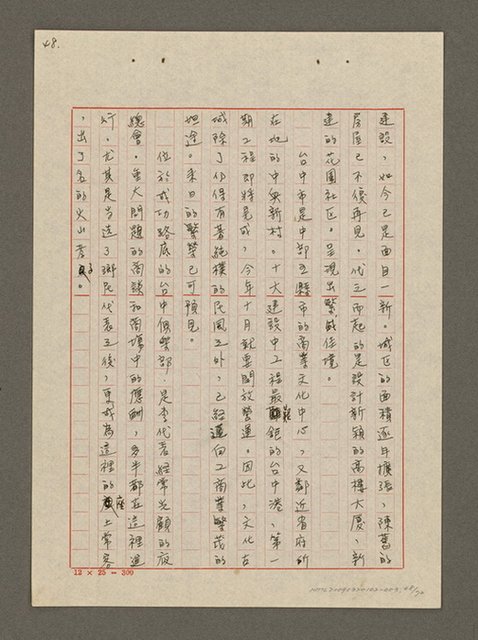 48.
建設，如今已是面目一新。城區的面積逐年擴張，陳舊的
房屋已不復再見。代之而起的是設計新穎的高樓大廈，新
建的花園社區。呈現出繁盛佳境。
台中市是中部五縣市的商業文化中心，又鄰近省府所
在地的中興新村。十大建設中工程最艱鉅的台中港，第一
期工程即將完成，今年十月就要開放營運。因此，文化古
城除了仍保有著純樸的民風之外，已經邁向工商業繁茂的
坦途。來日的繁榮已可預見。
位於成功路底的台中俱樂部，是李代者經常光顧的夜
總會。重大問題的商談和商場中的應酬，多半都在這裡進
行。尤其是當選了鄉民代表之後，更成為這裡的座上常客
，出了名的火山孝子。
12 × 25 = 300